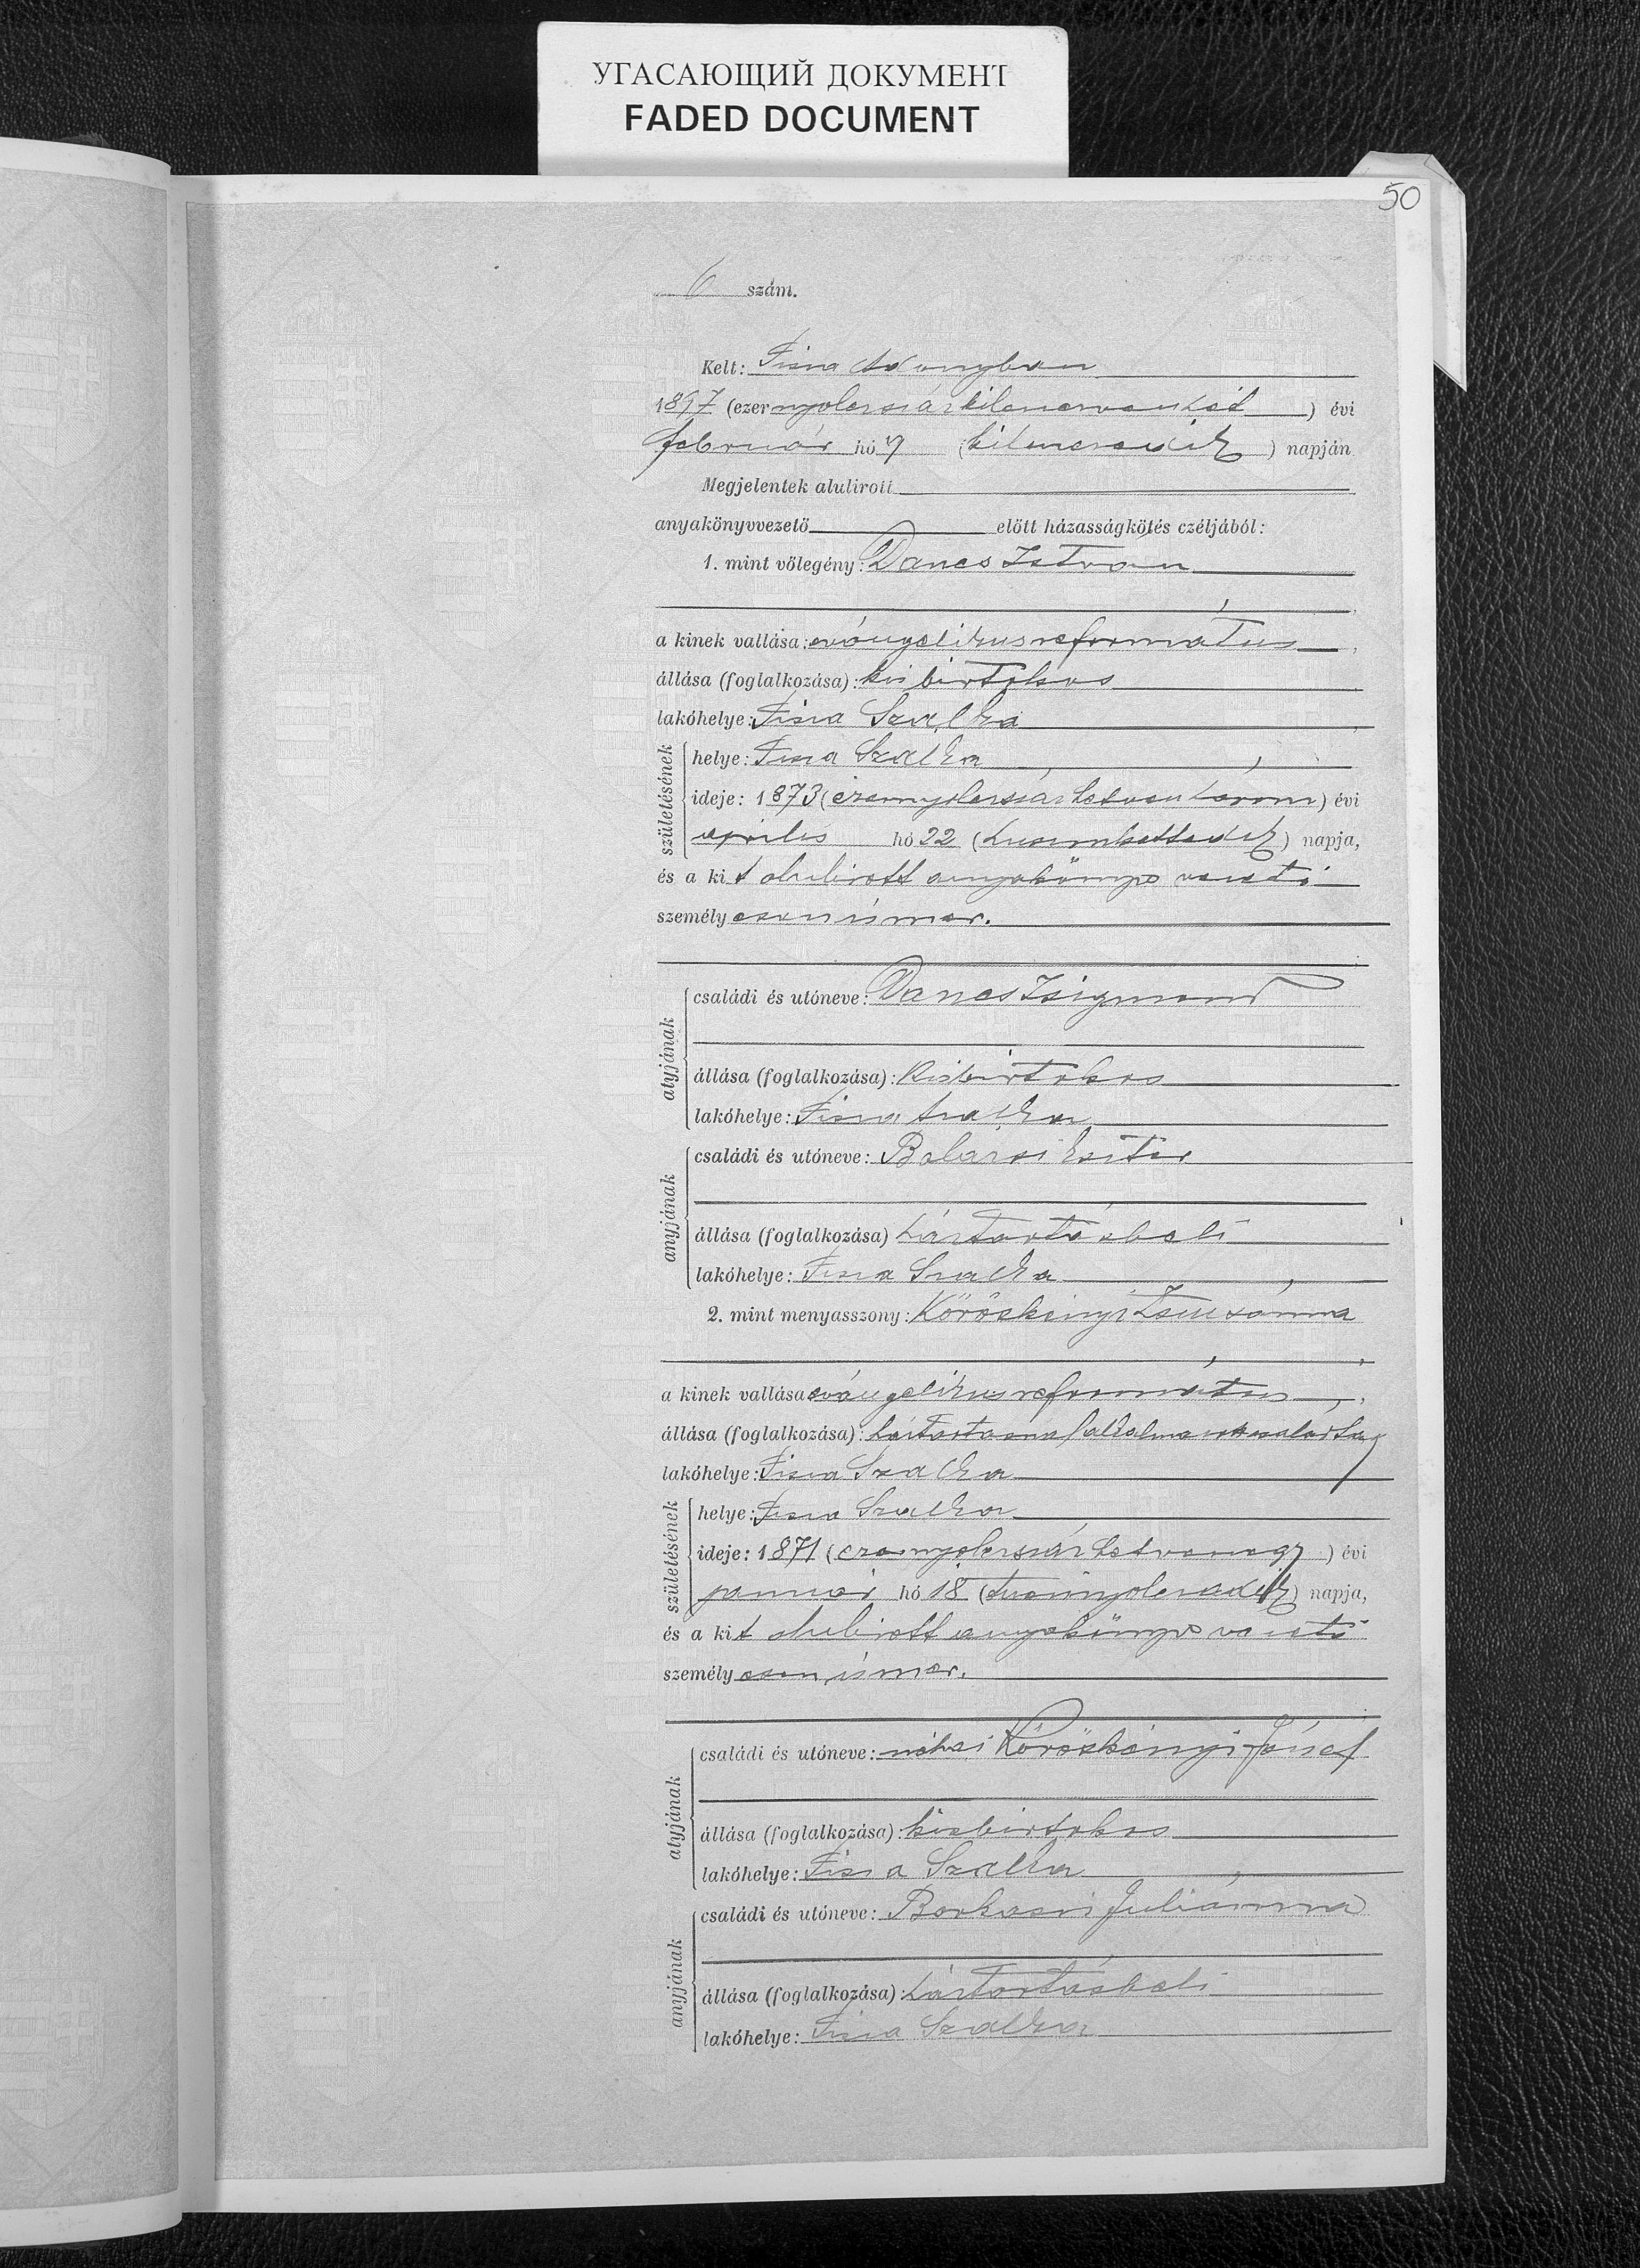 УГАСАЮЩИЙ ДОКУМЕНТ
FADED DOCUMENT
50
6 szám.
Kelt: Tisza
1897 (ezer nyolczszázkilenczvenhét) évi
február hó 9 (kilenczedik) napján
Megjelentek alulirott
anyakönyvvezető előtt házasságkötés czéljából:
1. mint vőlegény: Dancs István
a kinek vallása: evángelikus református,
állása (foglalkozása): kisbirtokos
lakóhelye: Tisza Szalka
születésének
helye: Tisza Szalka,
ideje: 1873 (ezernyolczszázhetvenhárom) évi
április hó 22 (huszonkettedik) napja,
és a kit alulirott anyakönyvvezető
személyesen ismer.
atyjának
családi és utóneve: Dancs Zsigmond
állása (foglalkozása): kisbirtokos
lakóhelye: Tisza Szalka
anyjának
családi és utóneve: Balázsi Eszter
állása (foglalkozása) háztartásbeli
lakóhelye: Tisza Szalka,
2. mint menyasszony: Kőröskényi Zsuzsánna
a kinek vallása evángelikus református,
állása (foglalkozása): családtag
lakóhelye: Tisza Szalka
születésének
helye: Tisza Szalka
ideje: 1871 (ezernyolczszázhetvenegy) évi
január hó 18 (tizennyolczadik) napja,
és a kit alulirott anyakönyvvezető
személyesen ismer.
atyjának
családi és utóneve: néhai Kőröskényi József
állása (foglalkozása): kisbirtokos
lakóhelye: Tisza Szalka,
anyjának
családi és utóneve: Juliánna
állása (foglalkozása): háztartásbeli
lakóhelye: Tisza Szalka